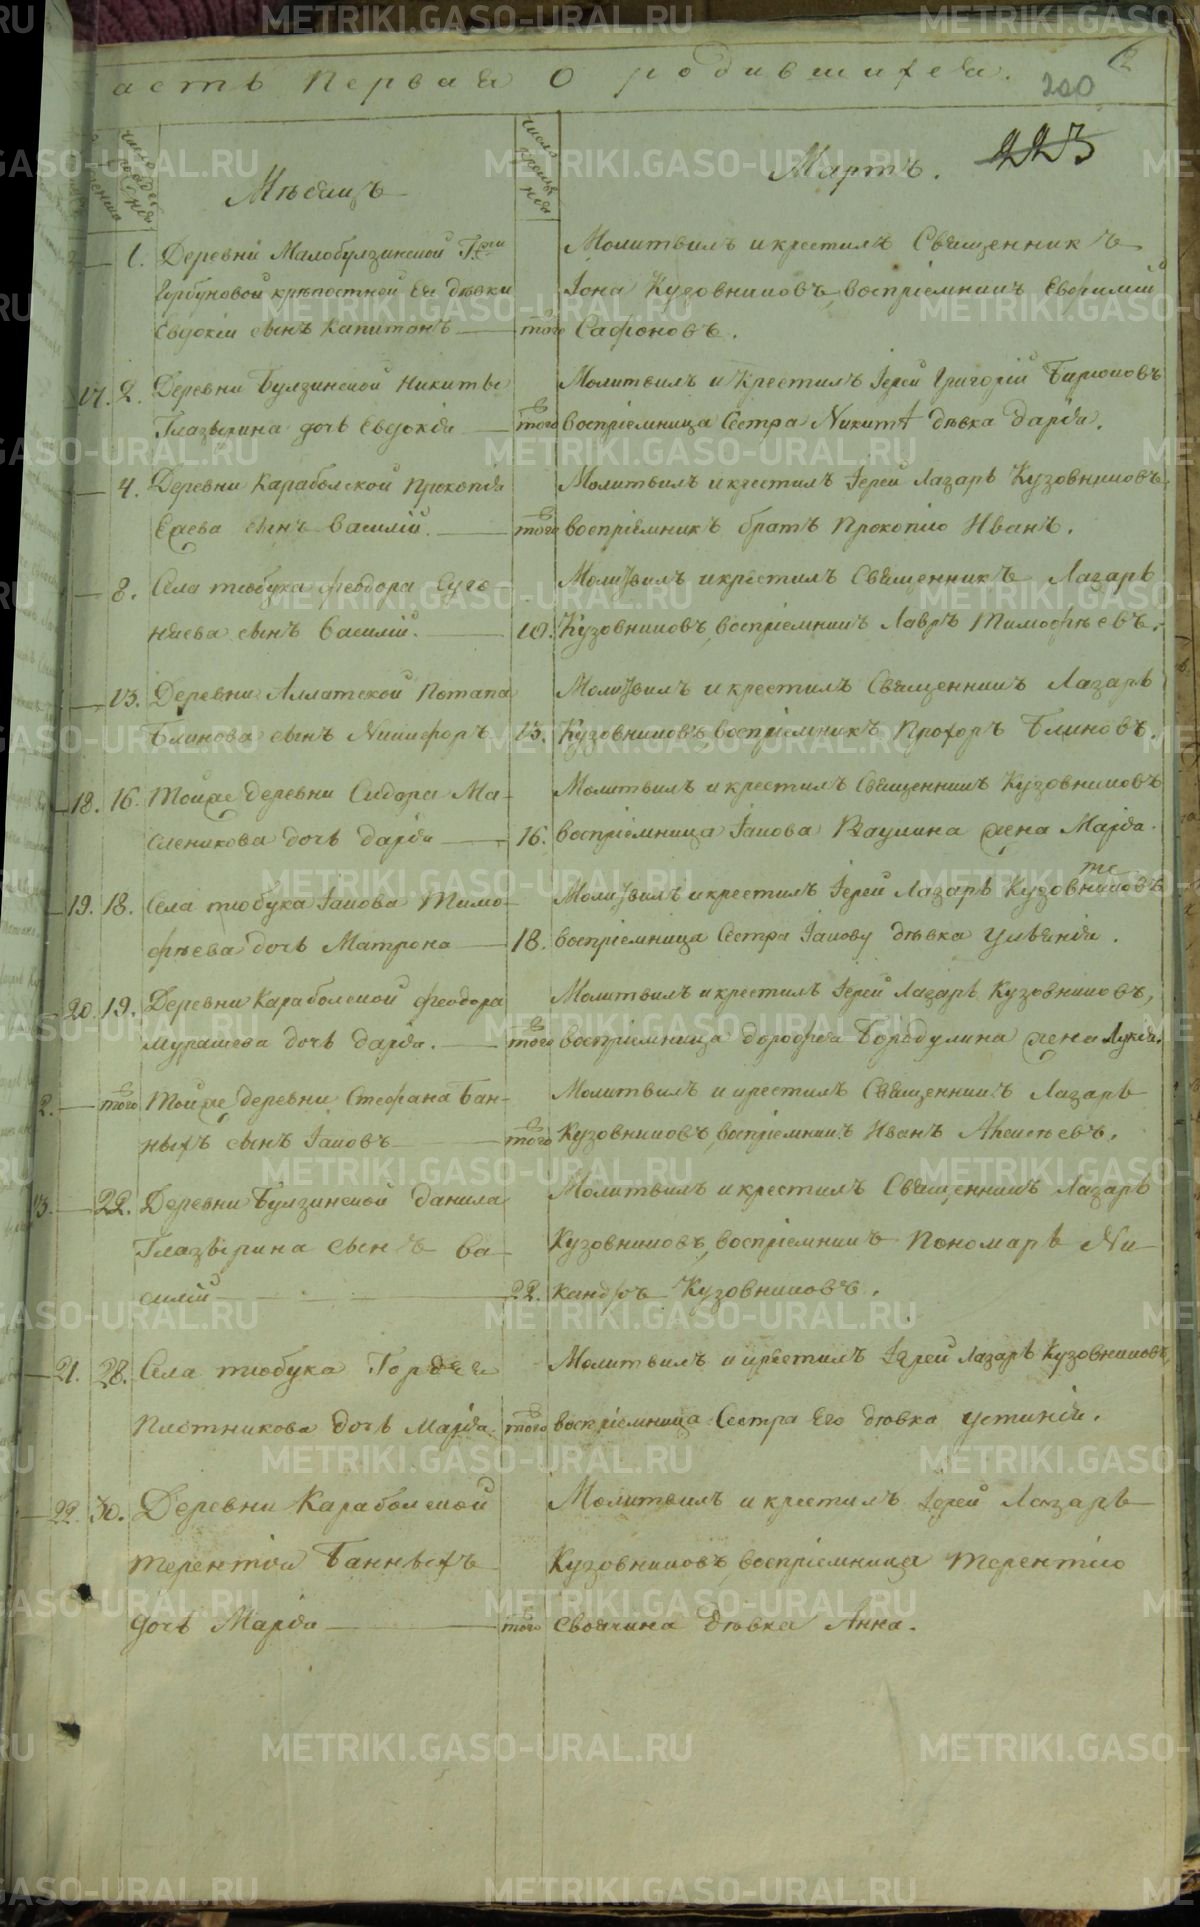 асть Первая О родившихся.
200
223
число рождения
Мѣсяцъ
число крещения
Мартъ.
1. Деревни Малобулзинской Г-жи
Горбуновой крѣпостной Ея дѣвки
Евдокіи сынъ Капитонъ того
Молитвилъ и крестилъ Священникъ
Іона Кузовниковъ, воспріемникъ Евфимій
Сафоновъ.
17. 2. Деревни Булзинской Никиты
Глазырина дочь Евдокія того
Молитвилъ и крестилъ Іерей Григорій Бирюковъ
воспріемница Сестра Никитѣ дѣвка Дарія.
4. Деревни Караболской Прокопія
сынъ Василій. того
Молитвилъ и крестилъ Іерей Лазарь Кузовниковъ
воспріемникъ братъ Прокопію Иванъ.
8. Села Тюбука Феодора Суго
няева сынъ Василій. 10.
Молитвилъ и крестилъ Священникъ Лазарь
Кузовниковъ, воспріемникъ Лавръ Тимофѣевъ.
13. Деревни Аллатской Потапа
Блинова сынъ Никифоръ 13.
Молитвилъ и крестилъ Священникъ Лазарь
Кузовниковъ, воспріемникъ Прохоръ Блиновъ.
18. 16. Тойже деревни Сидора Ма-
сленикова дочь Дарія 16.
Молитвилъ и крестилъ Священникъ Кузовниковъ
воспріемница Іакова Ваулина жена Марія.
19. 18. Села Тюбука Іакова Тимо-
фѣева дочь Матрона 18.
Молитвилъ и крестилъ Іерей Лазарь Кузовниковъ
воспріемница Сестра Іакову дѣвка Уліянія.
20. 19. Деревни Караболской Феодора
Мурашева дочь Дарія. того
Молитвилъ и крестилъ Іерей Лазарь Кузовниковъ,
воспріемница Дорофея Бородулина жена Лукія.
2. того Тойже деревни Стефана Бан-
ныхъ сынъ Іаковъ того
Молитвилъ и крестилъ Священникъ Лазарь
Кузовниковъ, воспріемникъ Иванъ
3. 22. Деревни Булзинской Данила
Глазырина сынъ Ва-
силій 22.
Молитвилъ и крестилъ Священникъ Лазарь
Кузовниковъ, воспріемникъ Пономарь Ни-
кандръ Кузовниковъ.
21. 28. Села Тюбука Гордѣя
Плотникова дочь Марія. того
Молитвилъ и крестилъ Іерей Лазарь Кузовниковъ,
воспріемница Сестра Его дѣвка Устинія.
22. 30. Деревни Караболской
Терентія Банныхъ
дочь Марія того
Молитвилъ и крестилъ Іерей Лазарь
Кузовниковъ, воспріемница Терентію
Своячина дѣвка Анна.
METRIKI.GASO-URAL.RU